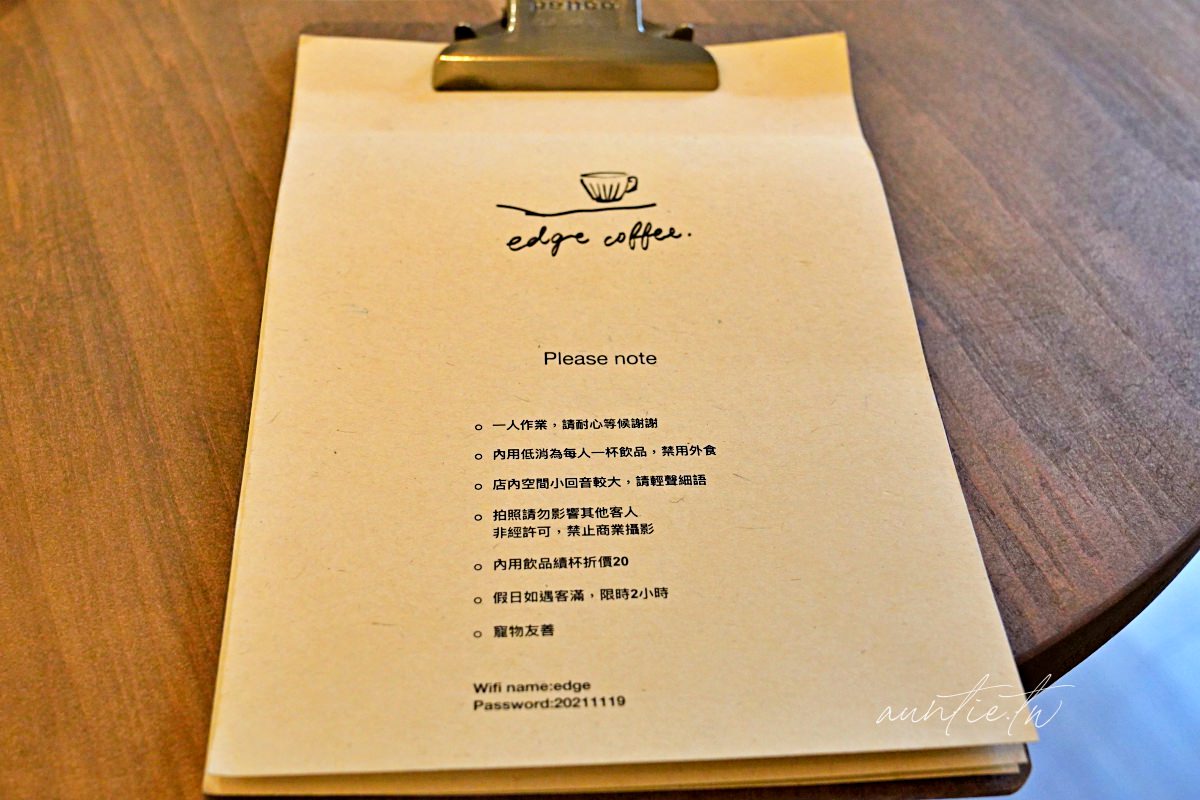 penco
edge coffee.
Please note
一人作業，請耐心等候謝謝
內用低消為每人一杯飲品，禁用外食
店內空間小回音較大，請輕聲細語
拍照請勿影響其他客人
非經許可，禁止商業攝影
內用飲品續杯折價20
假日如遇客滿，限時2小時
寵物友善
Wifi name:edge
Password:20211119
auntie.tw